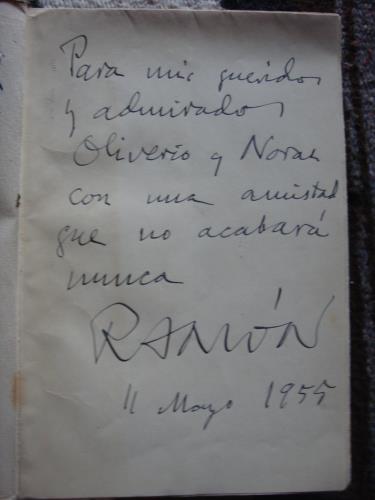 Para mis queridos
y admirados
Oliverio y Norah
con una amistad
que no acabará
nunca
RAMÓN
11 Mayo 1955